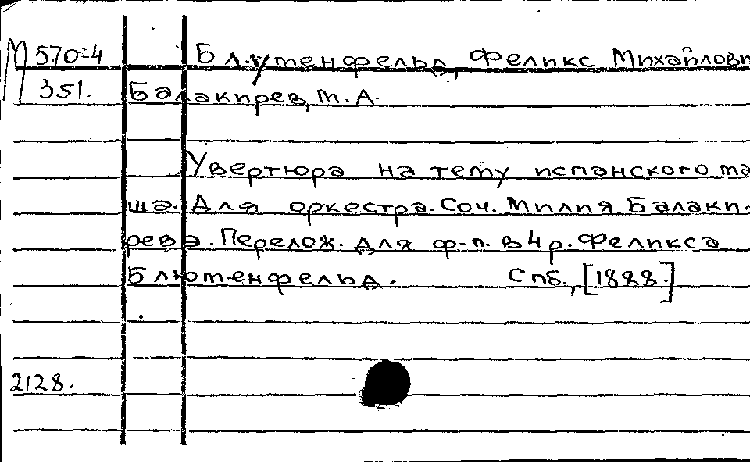 М 570-4 Блуменфельд, Феликс Михайлови
351. Балакирев, М. А.
Увертюра на тему испанского ма
ша. Для оркестра. Соч. Милия Балаки-
рева. Перелож. для ф-п. в 4 р. Феликса
Блюменфельд. Спб., [1888.]
2128.